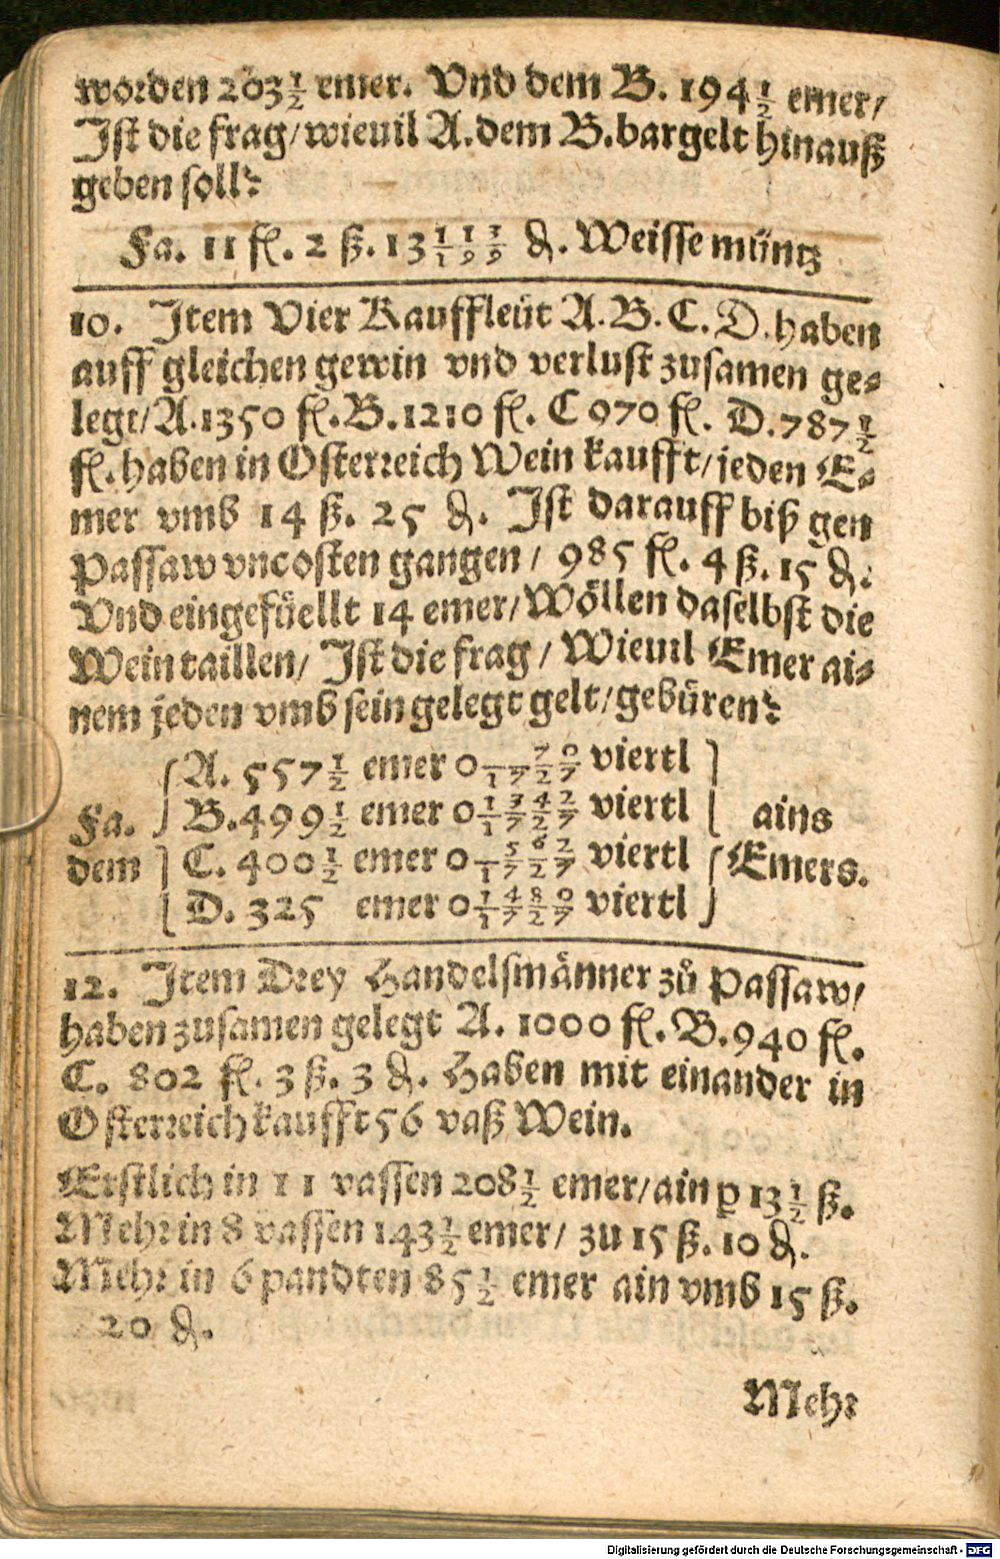 worden 203 1/2 emer. Vnd dem B. 194 1/2 emer/
Ist die frag/wieuil A.dem B.bargelt hinauß
geben soll?
Fa. 11 fl. 2 ß. 13 1/1 1/9 3/9 ₰. Weisse müntz
10. Item Vier Kauffleüt A.B.C.D.haben
auff gleichen gewin vnd verlust zusamen ge⸗
legt/A.1350 fl.B.1210 fl. C 970 fl. D.787 1/2
fl.haben in Osterreich Wein kaufft/jeden E⸗
mer vmb 14 ß. 25 ₰. Ist darauff biß gen
Passaw vncosten gangen/ 985 fl. 4 ß. 15 ₰.
Vnd eingefüellt 14 emer/Wöllen daselbst die
Wein taillen/ Ist die frag/ Wieuil Emer ai⸗
nem jeden vmb sein gelegt gelt/gebüren?
A. 557 1/2 emer 0 –/1 –/7 7/2 0/7 viertl
Fa. B.499 1/2 emer 0 1/1 3/7 4/2 2/7 viertl ains
dem C. 400 1/2 emer 0 –/1 5/7 6/2 2/7 viertl Emers.
D. 325 emer 0 1/1 4/7 8/2 0/7 viertl
12. Item Drey Handelsmänner zů Passaw/
haben zusamen gelegt A. 1000 fl. B.940 fl.
C. 802 fl. 3 ß. 3 ₰. Haben mit einander in
Osterreich kaufft 56 vaß Wein.
Erstlich in 11 vassen 208 1/2 emer/ain ꝑ 13 1/2 ß.
Mehr in 8 vassen 143 1/2 emer/ zu 15 ß. 10 ₰.
Mehr in 6 pandten 85 1/2 emer ain vmb 15 ß.
20 ₰.
Mehr
Digitalisierung gefördert durch die Deutsche Forschungsgemeinschaft - DFG